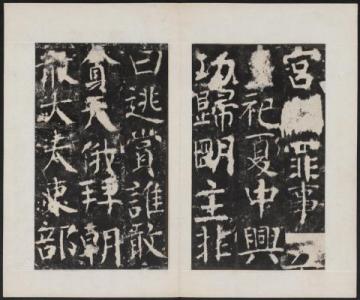 宮罪事
祀夏中興
功歸明主非
曰逃賞誰敢
貪天俄拜朝
散大夫部